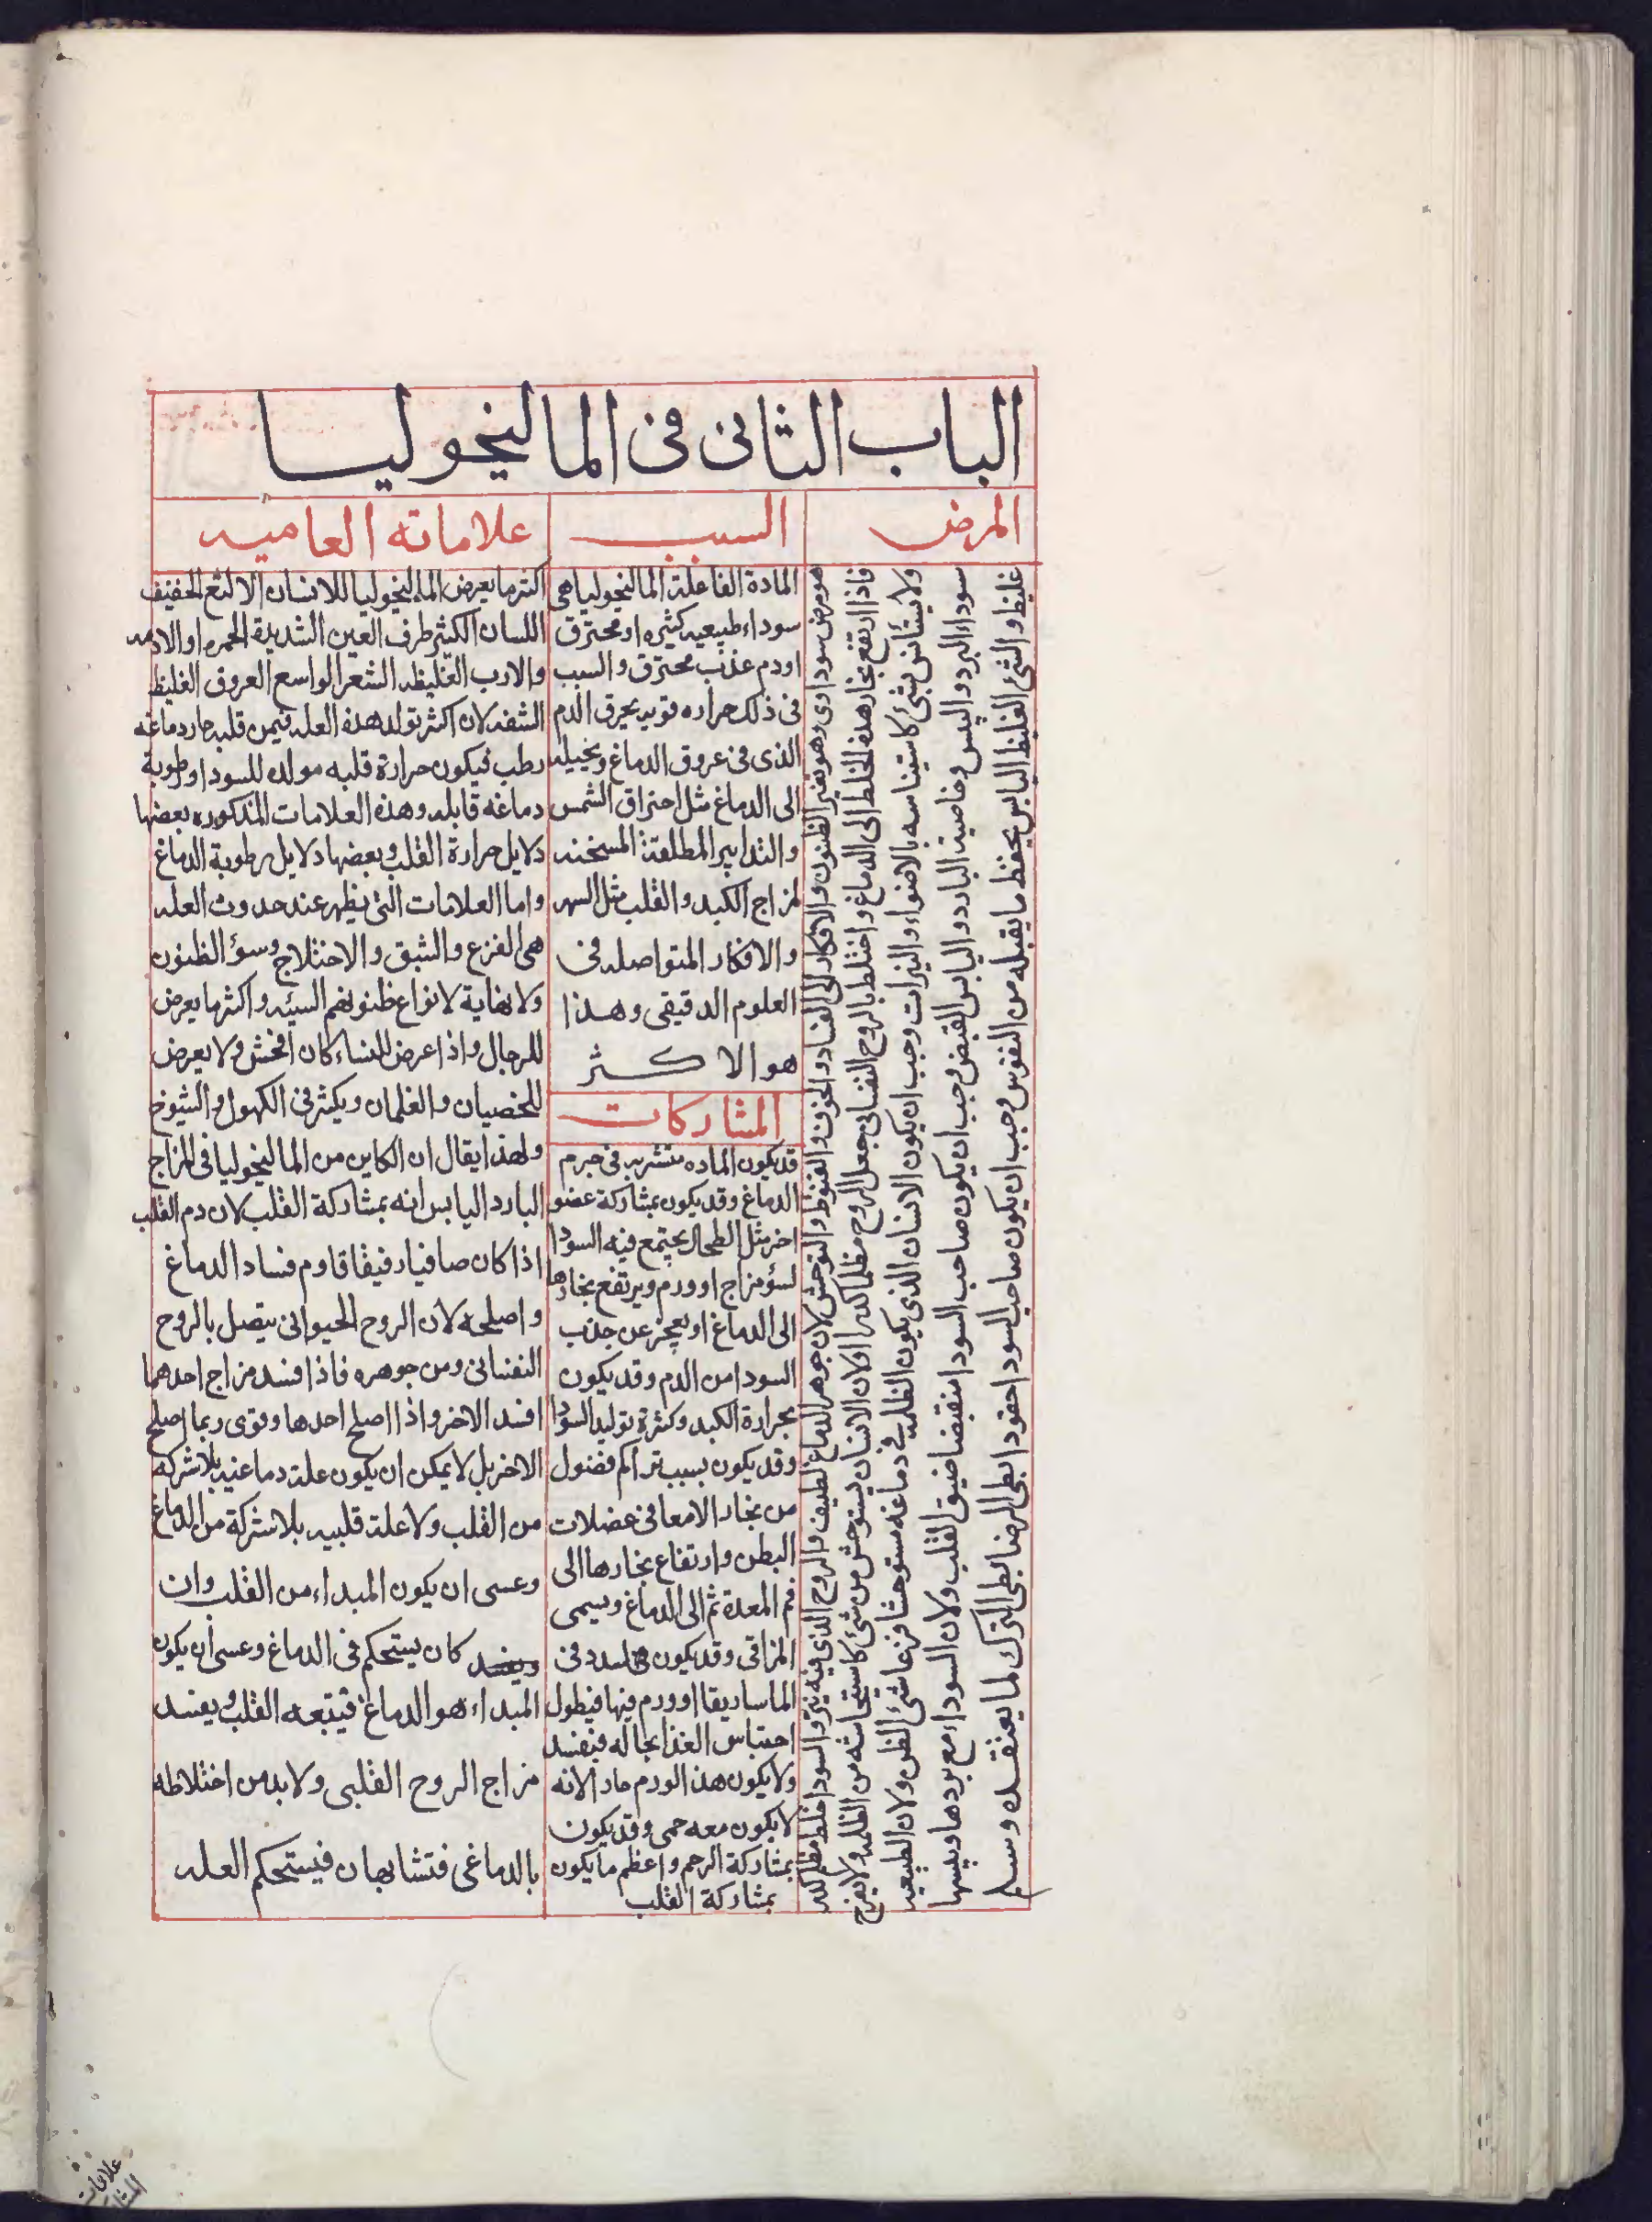 الباب الثانى فى المالنيخوليا
المرض
هو مرض سوداوى وهو تغير الظنون والافكار الى الفساد والخوف والقنوط والتوحش لان جوهر الدماغ لطيف والروح الذى فيه نير والسودا خلط مظلم كدر
فاذا ارتفع بخار هذه الخلط الى الدماغ واختلط بالروح النفسانى جعل الروح مظلما كدرا ولان الانسان يستوحش من شئ كاستيحاشه من الظلمه ولا يفزع
ولا يستأنس بشئ كاستيناسه بالاضواء والنيرات وجب ان يكون الانسان الذى يكون الظلمه فى دماغه مستوحشا فزعا سئ الظن ولان الطبيعيه
سوداء البرد واليبس وخاصية البارد واليابس القبض وجب ان يكون صاحب السودا منقبضا ضيق القلب ولان السوداء مع بردها ويبسها
غليظ والشئ الغليظ اليابس يحفظ ما يقبله من النقوش وجب ان يكون صاحب السودا حقودا بطى الرضا بطى الترك لما يعتقده وسل
السبب
المادة الفاعلة المالنيخوليا هى
سوداء طبيعيه كثيره او محترق
او دم عذب محترق والسبب
فى ذلك حراره قويه يحرق الدم
الذى فى عروق الدماغ ويخيله
الى الدماغ مثل احتراق الشمس
والتدابير المطلقة المسخنه
لمزاج الكبد والقلب مثل السهر
والافكار المتواصله فى
العلوم الدقيقى وهذا
هو الاكثر
المشاركات
قد يكون الماده متشربه فى جرم
الدماغ وقد يكون بمشاركة عضو
اخر مثل الطحال يجتمع فيه السودا
لسؤ مزاج او ورم ويرتفع بخارها
الى الدماغ او يعجز عن جذب
السودا من الدم وقد يكون
بحرارة الكبد وكثرة توليد السودا
وقد يكون بسبب تراكم فضول
من بخار الامعا فى عضلات
البطن وارتفاع بخارها الى
فم المعدة ثم الى الدماغ ويسمى
المراقى وقد يكون لسدد فى
الماساريقا او ورم فيها فيطول
احتباس الغذا بحاله فيفسد
ولا يكون هذا الورم حار الانه
لا يكون معه حمى وقد يكون
بمشاركة الرحم واعظم ما يكون
بمشاركة القلب
علاماته العاميه
اكثر ما يعرض المالنيخوليا للانسان الالثغ الخفيف
اللسان الكثير طرف العين الشديدة الحمره او الادمه
والازب الغليظه الشعر الواسع العروق الغليظ
الشفه لان اكثر تولد هذه العله فيمن قلبه حار دماغه
رطب فيكون حرارة قلبه مولده للسودا ورطوبة
دماغه قابله وهذه العلامات المذكوره بعضها
دلايل حرارة القلب وبعضها دلايل رطوبة الدماغ
واما العلامات التى يظهر عند حدوث العله
هى الفزع والشبق والاختلاج وسؤ الظنون
ولا نهاية لانواع ظنونهم السيئه واكثر ما يعرض
للرجال واذا عرض للنساء كان افحش ولا يعرض
للخصيان والغلمان ويكثر فى الكهول والشيوخ
ولهذا يقال ان الكاين من المالنيخوليا فى المزاج
البارد اليابس انه بمشاركة القلب لان دم القلب
اذا كان صافيا رفيقا قاوم فساد الدماغ
واصلحه لان الروح الحيوانى يتصل بالروح
النفسانى ومن جوهره فاذا افسد مزاج احدهما
افسد الاخر واذا اصلح احدها وقوى ربما اصلح
الاخر بل لا يمكن ان يكون علة دماغيه بلا شركه
من القلب ولا علة قلبيه بلا شركة من الدماغ
وعسى ان يكون المبداء من القلب وان
ويفسد كان يستحكم فى الدماغ وعسى ان يكون
المبداء هو الدماغ فيتبعه القلب ويفسد
مزاج الروح القلبى ولا بد من اختلاطه
بالدماغى فتشابهان فيستحكم العله
علامات